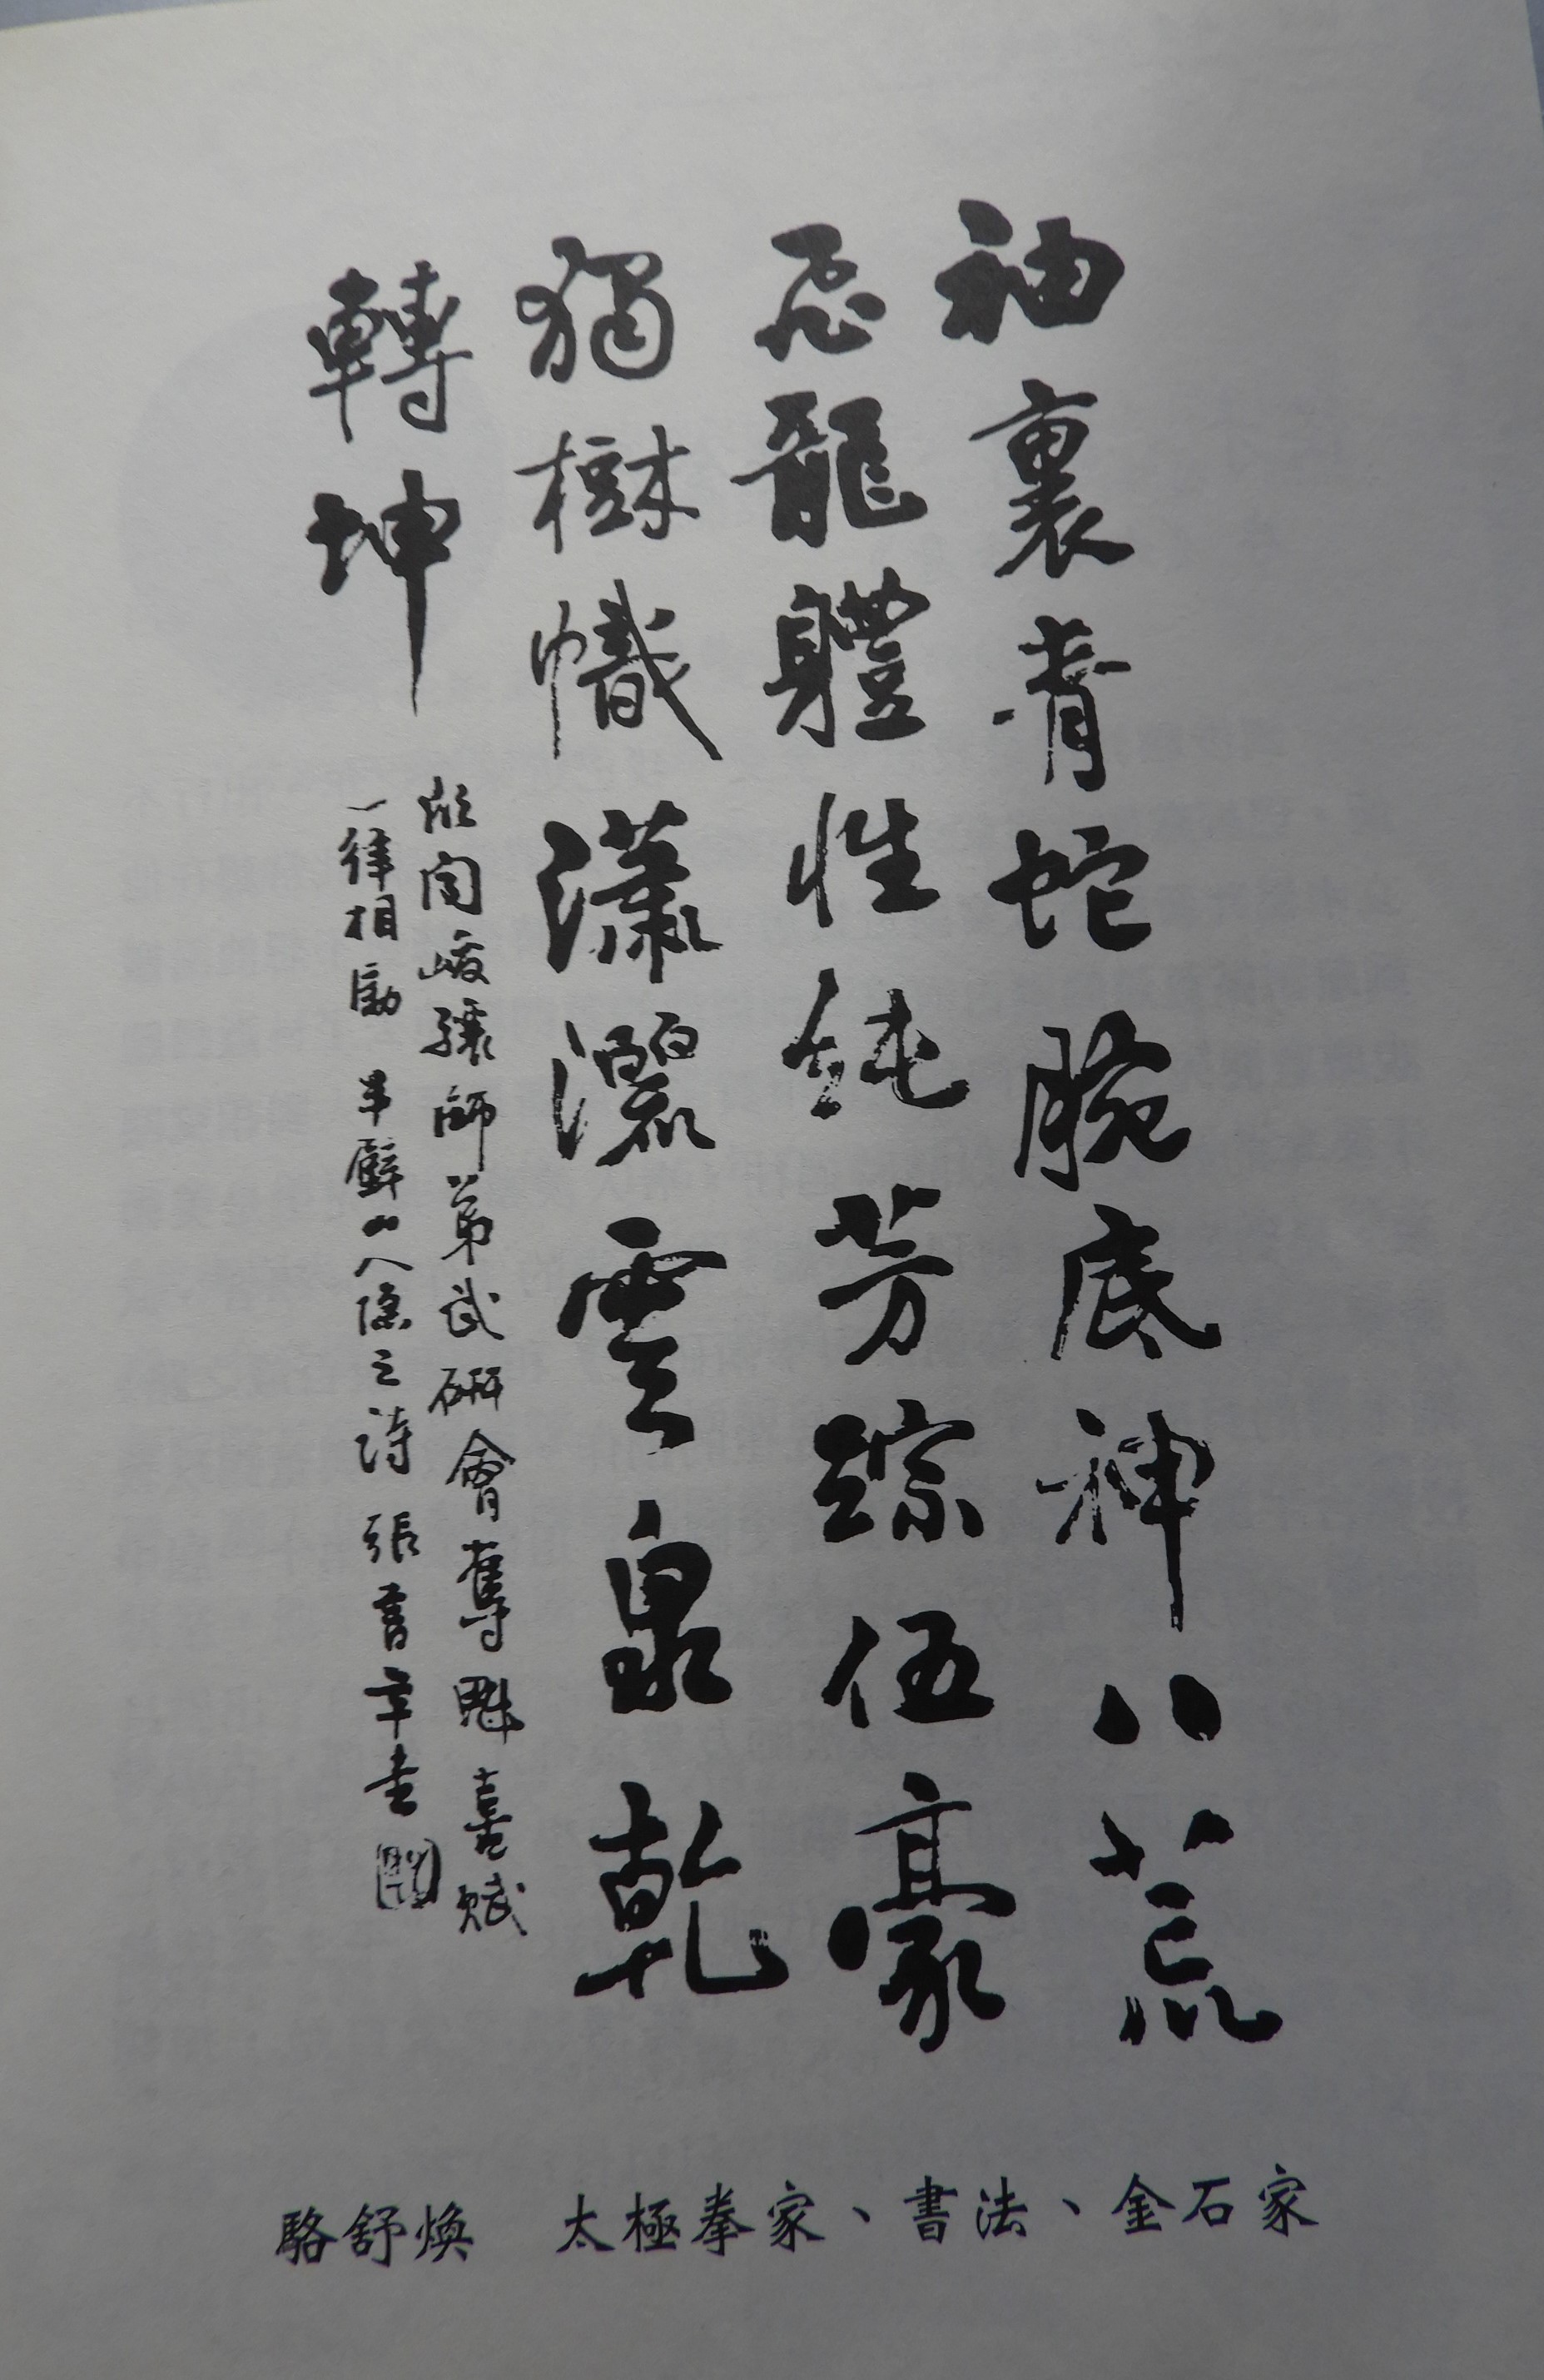 袖裏青蛇腕底神八荒
飛龍體性純芳踪伍豪
獨樹幟瀟灑雲泉乾
轉坤
欣聞峻驤師弟武研會奪魁喜賦
一律相勵 半壁山人隱之詩 張書
駱舒煥 太極拳家、書法、金石家